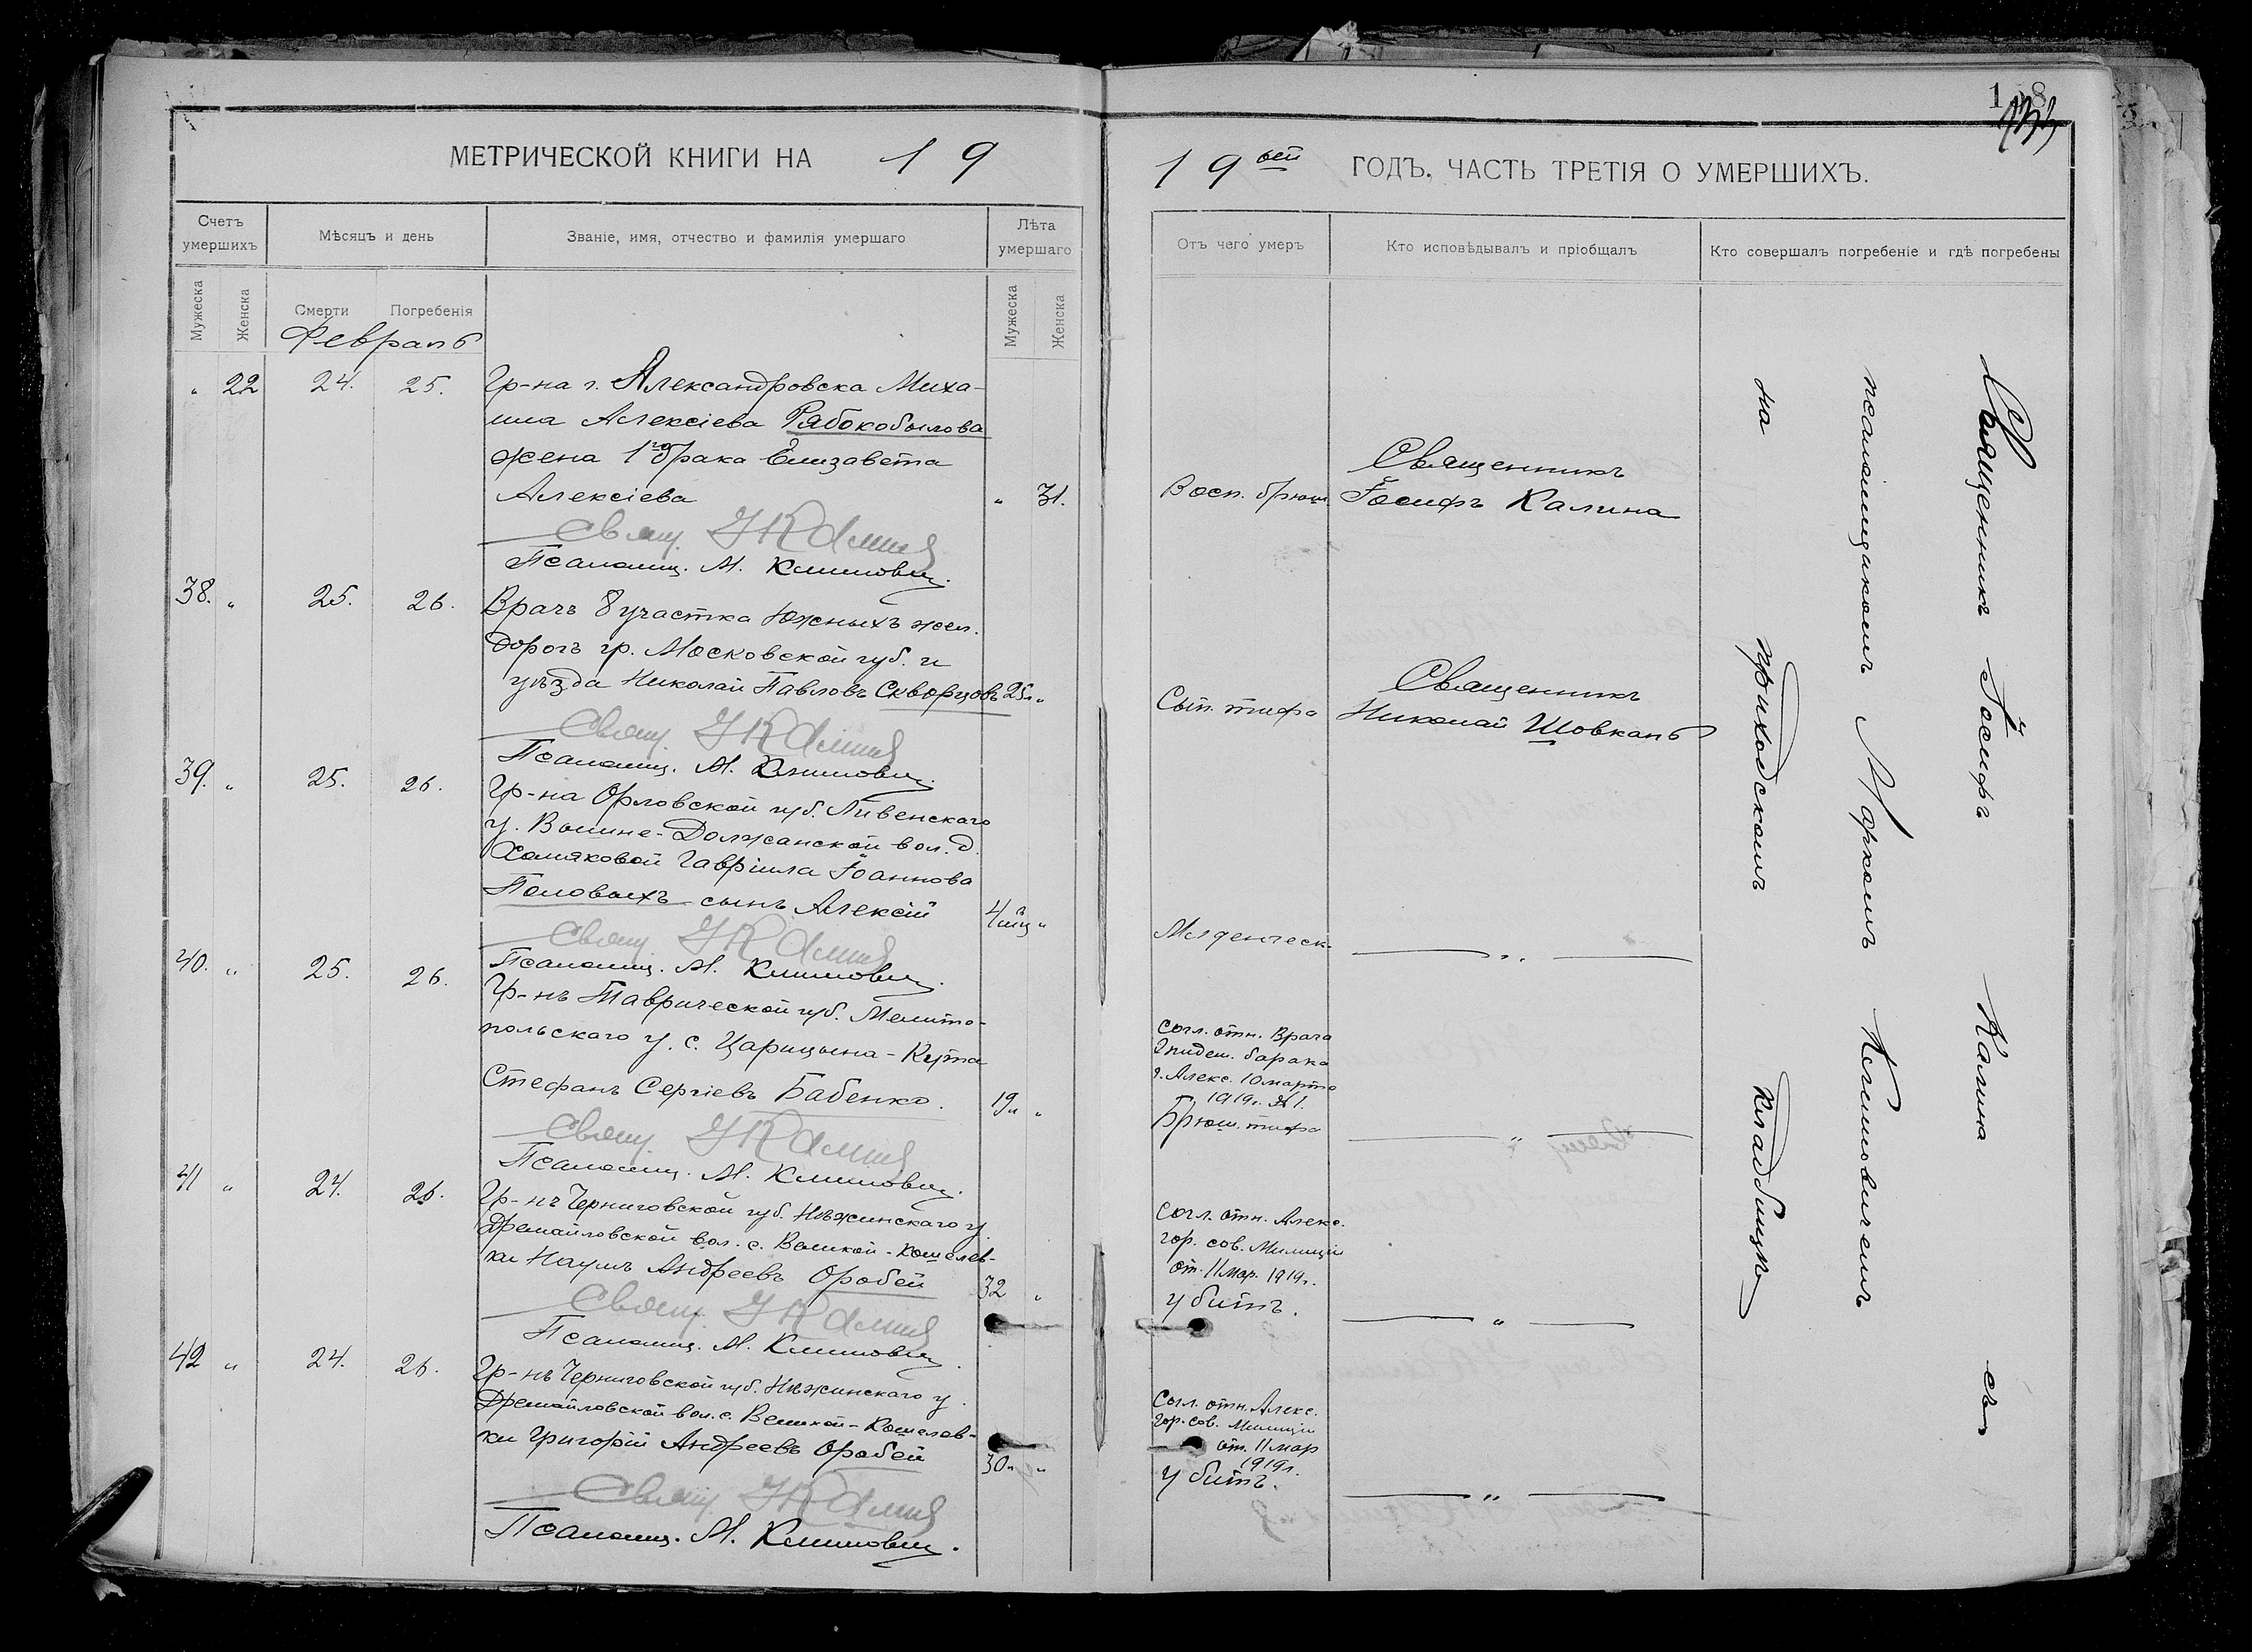 МЕТРИЧЕСКОЙ КНИГИ НА 19
19ый ГОДЪ, ЧАСТЬ ТРЕТІЯ О УМЕРШИХЪ.
Счетъ умершихъ
Мѣсяцъ и день
Званіе, имя, отчество и фамилія умершаго
Лѣта умершаго
Отъ чего умеръ
Кто исповѣдывалъ и пріобщалъ
Кто совершалъ погребеніе и гдѣ погребены
Мужеска
Женска
Смерти
Погребенія
Мужеска
Женска
Февраль
" 22 24. 25. Гр-на г. Александровска Миха-
ила Алексіева Рябокобылова
жена 1го брака Елизавета
Алексіева " 31.
Восп. брюш.
Священникъ
Іосифъ Калина
Свящ. І Калина
Псаломщ. М. Климович.
38. " 25. 26. Врачъ 8 участка Южныхъ жел.
дорогъ гр. Московской губ. и
уѣзда Николай Павловъ Скворцовъ 25л "
Сып. тифа
Священникъ
Николай Шовкапь
Свящ. І Калина
Псаломщ. М. Климович.
39. " 25. 26. Гр-на Орловской губ. Ливенскаго
у. Вышне-Должанской вол. д.
Хомяковой Гавріила Іоаннова
Половыхъ сынъ Алексій 4 мц "
Младенческ. "
Свящ. І Калина
Псаломщ. М. Климович.
40. " 25. 26. Гр-нъ Таврической губ. Мелито-
польскаго у. с. Царицына-Кута
Стефанъ Сергіевъ Бабенко. 19л "
Согл. отн. Врача
Эпидем. барака
г. Алекс. 10 марта
1919г. № 1.
Брюш. тифа "
Свящ. І Калина
Псаломщ. М. Климович.
41 " 24. 26. Гр-нъ Черниговской губ. Нѣжинскаго у.
Дремайловской вол. с. Великой-Кошелев-
ки Наумъ Андреевъ Оробей 32 "
Согл. отн. Алекс.
гор. сов. Милиціи
от. 11 мар. 1919г.
убитъ. "
Свящ. І Калина
Псаломщ. М. Климович.
42 " 24. 26. Гр-нъ Черниговской губ. Нѣжинскаго у.
Дремайловской вол. с. Великой-Кошелев-
ки Григорій Андреевъ Оробей 30л "
Согл. отн. Алекс.
гор. сов. Милиціи
от. 11 мар
1919г.
убитъ. "
Свящ. І Калина
Псаломщ. М. Климович.
Священникъ Іосифъ Калина съ
псаломщикомъ Маркомъ Климовичемъ
на приходскомъ кладбищѣ